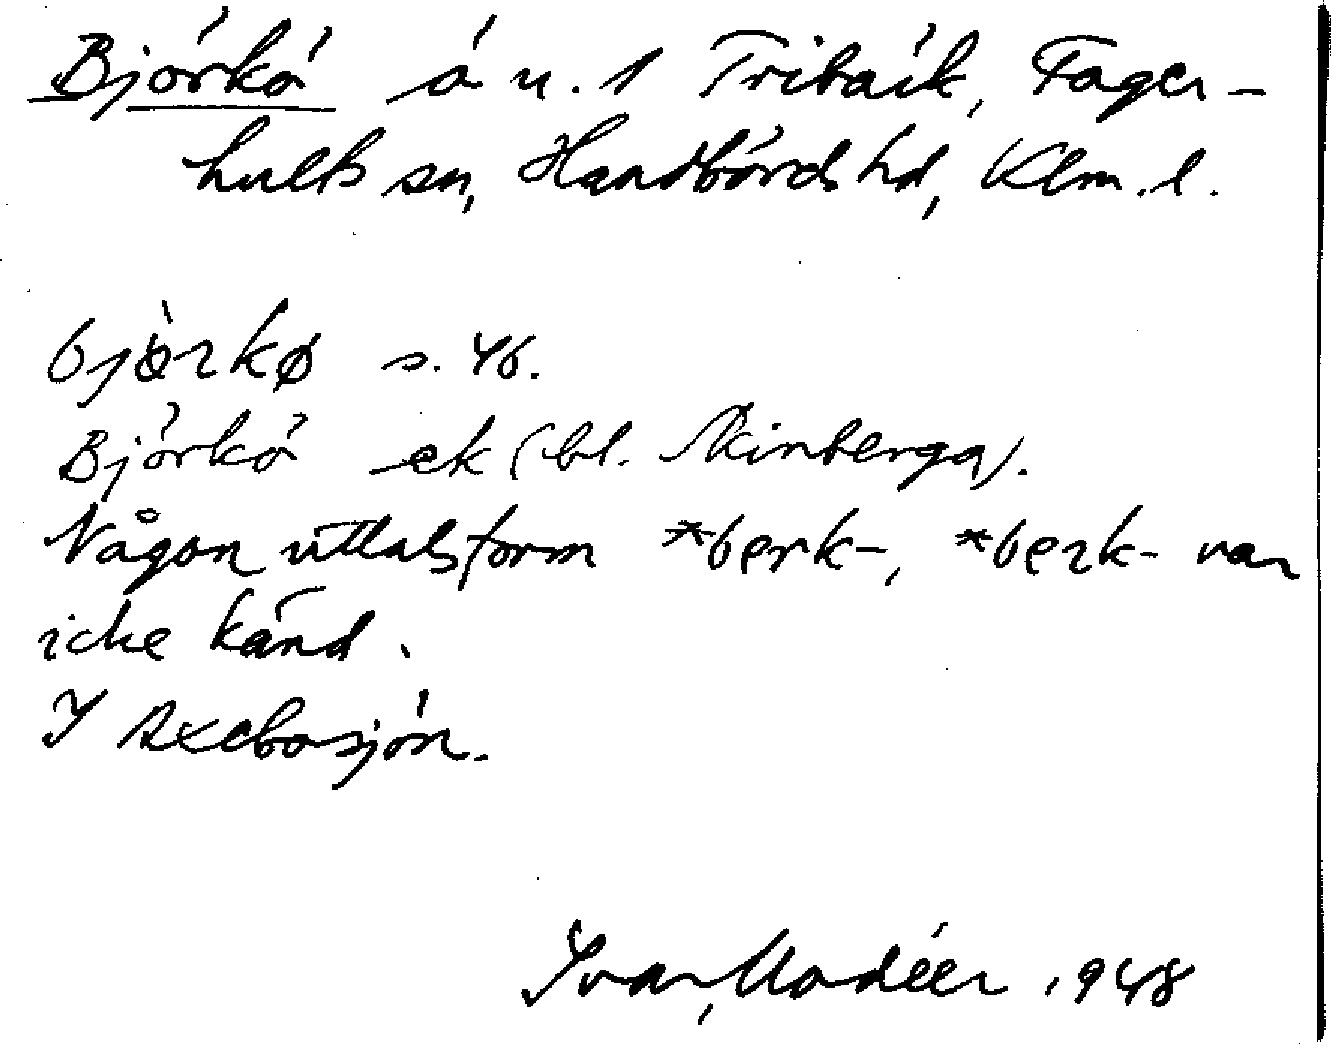 Björkö ö u. 1 Tribäck, Fager-
hults sn, Handbörds hd, Klm. l.
bjòrkø s. 46.
Björkö ek (bl. Skinberga).
Någon uttalsform *berk-, *bezk- var
icke känd.
I Axebosjön.
Ivar Modéer 1948